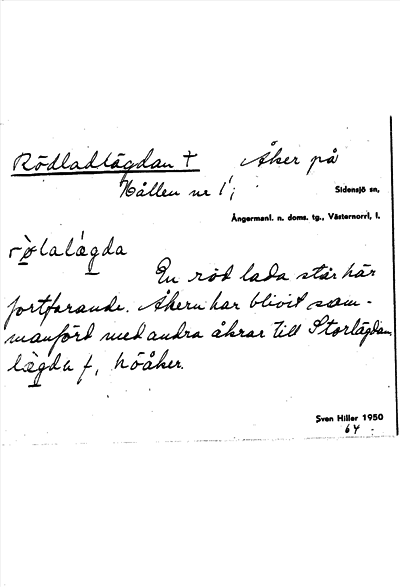 Rödladlägdan † Åker på
Hållen nr 1;
Sidensjö sn,
Ångermanl. n. doms. tg., Västernorrl, l.
rø̀lalágda
En röd lada står här
fortfarande. Åkern har blivit sam-
manförd med andra åkrar till Storlägdan.
lägda f, höåker.
Sven Hiller 1950
64